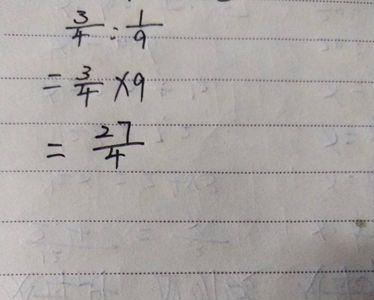 3/4 : 1/9
= 3/4 × 9
= 27/4